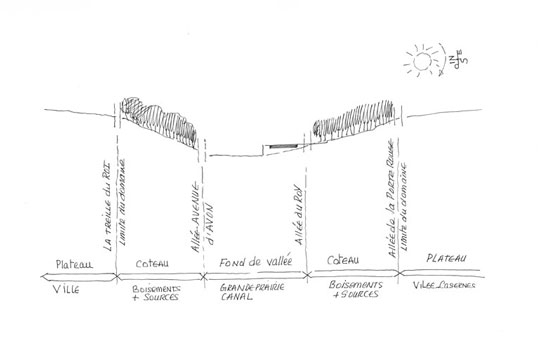 N
E
S
LA TREILLE DU ROI
Limite du domaine
Allée-AVENUE
D'AVON
Allée du ROY
Allée de la PORTE Rouge
Limite du domaine
Plateau
COTEAU
FOND de vallée
COTEAU
PLATEAU
VILLE
BOISEMENTS
+ SOURCES
GRANDE PRAIRIE
CANAL
BOISEMENTS
+ SOURCES
VILLE CASERNES